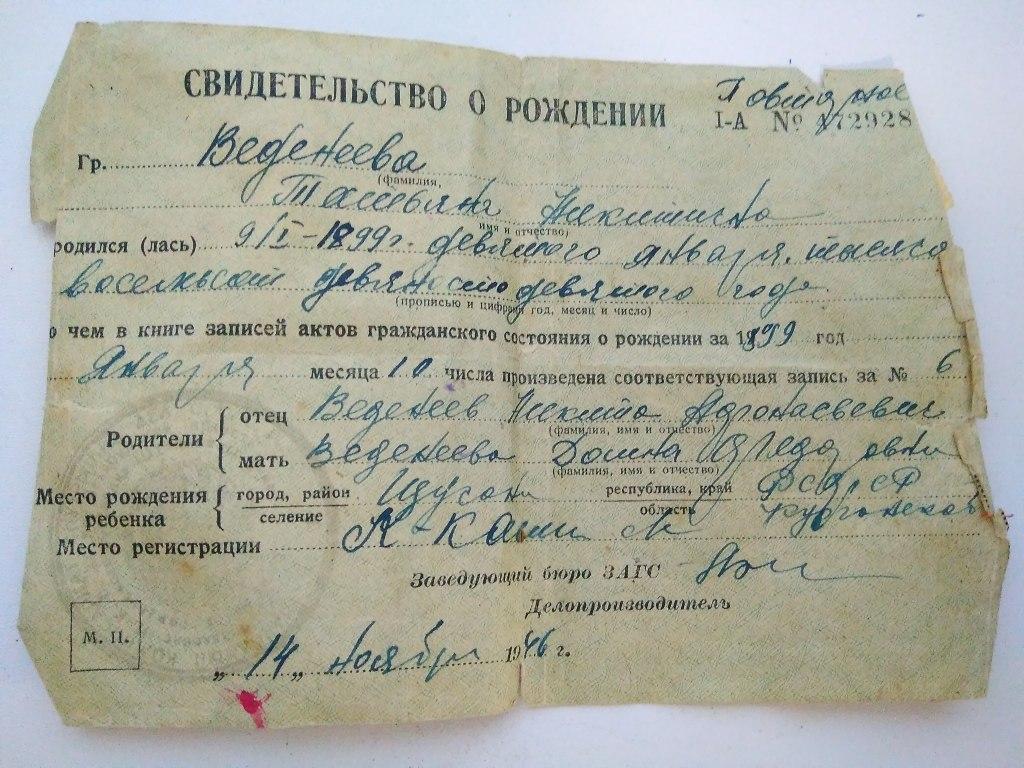 СВИДЕТЕЛЬСТВО О РОЖДЕНИИ
Повторное
I-А № 472928
Гр. Веденеева
(фамилия,
Татьяна Никитична
имя и отчество)
родился (лась) 9/I-1899г. девятого января тысяча
восемьсот девяносто девятого года
(прописью и цифрами год, месяц и число)
о чем в книге записей актов гражданского состояния о рождении за 1899 год
Января месяца 10 числа произведена соответствующая запись за № 6
Родители
отец Веденеев Никита
(фамилия, имя и отчество)
мать Веденеева
(фамилия, имя и отчество)
Место рождения ребенка
город, район
селение
республика, край
область
РСФСР
Место регистрации
Заведующий бюро ЗАГС
Делопроизводитель
М. П.
„14„ ноября 1946 г.